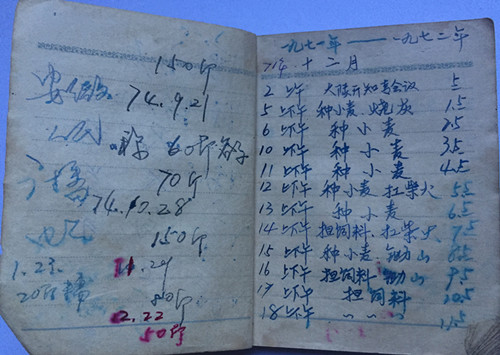 150斤
74.9.21
70斤
74.10.28
150斤
1.23.
11.29
20斤
50斤
2.22
50斤
一九七一年——一九七二年
71年十二月
2 上午 大队开知青会议 .5
5 上午 种小麦 烧灰 1.5
6 上下午 种小麦 2.5
10 上下午 种小麦 3.5
11 上下午 种小麦 4.5
12 上下午 种小麦 扛柴火 5.5
13 上下午 种小麦 6.5
14 上下午 担饲料、扛柴火 7.5
15 上下午 种小麦、锄山 8.5
16 上下午 担饲料 锄山 9.5
17 上下午 担饲料 10.5
18 上下午 〃 〃 〃 11.5